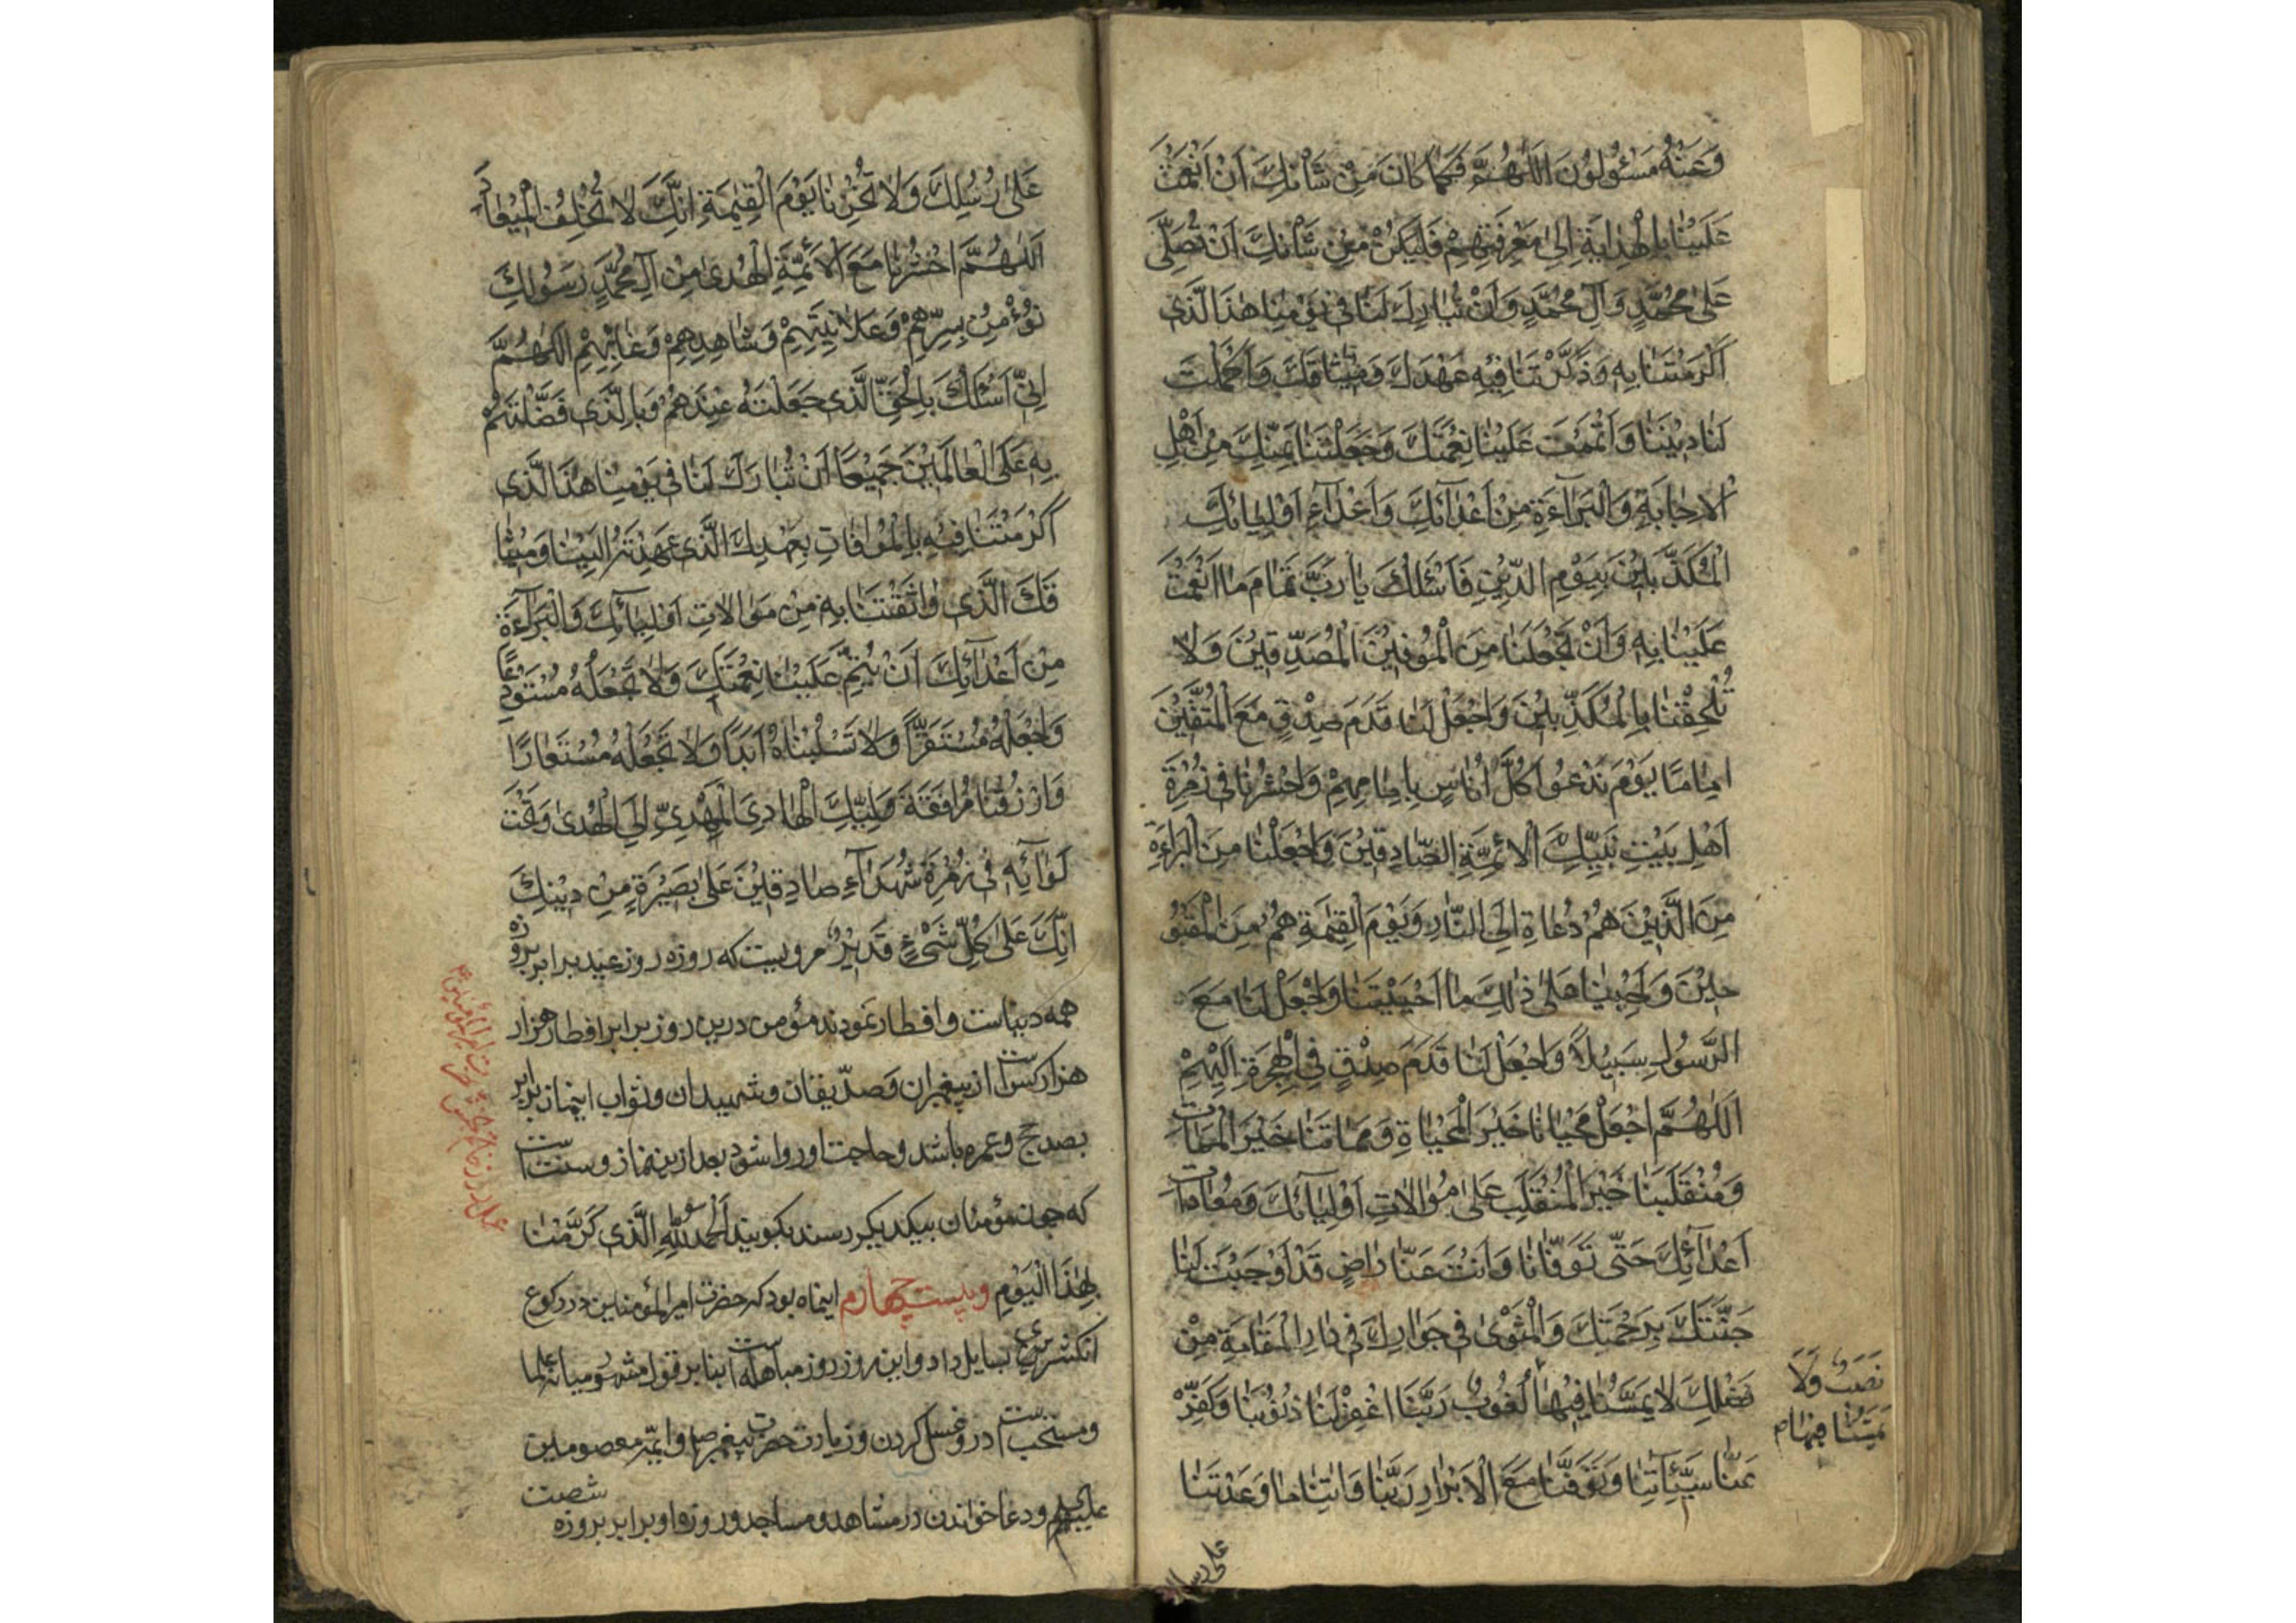 وَعَنْهُ مَسْؤُلُونَ اَللّٰهُمَّ فَكَمَا كَانَ مِنْ شَأْنِكَ اَنْ اَنْعَمْتَ
عَلَيْنَا بِالْهِدَايَةِ اِلٰى مَعْرِفَتِهِمْ فَلْيَكُنْ مِنْ شَأْنِكَ اَنْ تُصَلِّىَ
عَلٰى مُحَمَّدٍ وَآلِ مُحَمَّدٍ وَاَنْ تُبَارِكَ لَنَا فِى يَوْمِنَا هٰذَا الَّذِى
اَكْرَمْتَنَا بِهِ وَذَكَّرْتَنَا فِيْهِ عَهْدَكَ وَمِيْثَاقَكَ وَاَكْمَلْتَ
لَنَا دِيْنَنَا وَاَتْمَمْتَ عَلَيْنَا نِعْمَتَكَ وَجَعَلْتَنَا بِمَنِّكَ مِنْ اَهْلِ
الْاِجَابَةِ وَالْبَرَآءَةِ مِنْ اَعْدَآئِكَ وَاَعْدَآءِ اَوْلِيَائِكَ
الْمُكَذِّبِيْنَ بِيَوْمِ الدِّيْنِ فَاَسْئَلُكَ يَا رَبِّ تَمَامَ مَا اَنْعَمْتَ
عَلَيْنَا بِهِ وَاَنْ تَجْعَلَنَا مِنَ الْمُوْفِيْنَ الْمُصَدِّقِيْنَ وَلَا
تُلْحِقْنَا بِالْمُكَذِّبِيْنَ وَاجْعَلْ لَنَا قَدَمَ صِدْقٍ مَعَ الْمُتَّقِيْنَ
اِمَامًا يَوْمَ نَدْعُوْا كُلَّ اُنَاسٍ بِاِمَامِهِمْ وَاحْشُرْنَا فِى زُمْرَةِ
اَهْلِ بَيْتِ نَبِيِّكَ الْاَئِمَّةِ الصَّادِقِيْنَ وَاجْعَلْنَا مِنَ الْبَرَاءَةِ
مِنَ الَّذِيْنَ هُمْ دُعَاةٌ اِلَى النَّارِ وَيَوْمَ الْقِيٰمَةِ هُمْ مِنَ الْمَقْبُوْ
حِيْنَ وَاَحْيِنَا عَلٰى ذٰلِكَ مَا اَحْيَيْتَنَا وَاجْعَلْ لَنَا مَعَ
الرَّسُوْلِ سَبِيْلًا وَاجْعَلْ لَنَا قَدَمَ صِدْقٍ فِى الْهِجْرَةِ اِلَيْهِمْ
اَللّٰهُمَّ اجْعَلْ مَحْيَانَا خَيْرَ الْمَحْيَاةِ وَمَمَاتَنَا خَيْرَ الْمَمَاتِ
وَمُنْقَلَبَنَا خَيْرَ الْمُنْقَلَبِ عَلٰى مُوَالَاتِ اَوْلِيَآئِكَ وَمُعَادَاتِ
اَعْدَآئِكَ حَتّٰى تَوَفَّانَا وَاَنْتَ عَنَّا رَاضٍ قَدْ اَوْجَبْتَ لَنَا
جَنَّتَكَ بِرَحْمَتِكَ وَالْمَثْوٰى فِى جَوَارِكَ فِى دَارِ الْمُقَامَةِ مِنْ
فَضْلِكَ لَا يَمَسُّنَا فِيْهَا لُغُوْبٌ رَبَّنَا اغْفِرْ لَنَا ذُنُوْبَنَا وَكَفِّرْ
نَصَبٌ وَلَا
يَمَسُّنَا فِيْهَا م
عَنَّا سَيِّئَاتِنَا وَتَوَفَّنَا مَعَ الْاَبْرَارِ رَبَّنَا وَاٰتِنَا مَا وَعَدْتَنَا
على رسلك
عَلٰى رُسُلِكَ وَلَا تُخْزِنَا يَوْمَ الْقِيٰمَةِ اِنَّكَ لَا تُخْلِفُ الْمِيْعَادَ
اَللّٰهُمَّ احْشُرْنَا مَعَ الْاَئِمَّةِ الْهُدٰى مِنْ آلِ مُحَمَّدٍ رَسُوْلِكَ
نُؤْمِنُ بِسِرِّهِمْ وَعَلَانِيَتِهِمْ وَشَاهِدِهِمْ وَغَائِبِهِمْ اَللّٰهُمَّ
اِنِّى اَسْئَلُكَ بِالْحَقِّ الَّذِى جَعَلْتَهُ عِنْدَهُمْ وَبِالَّذِى فَضَّلْتَهُمْ
بِهِ عَلَى الْعَالَمِيْنَ جَمِيْعًا اَنْ تُبَارِكَ لَنَا فِى يَوْمِنَا هٰذَا الَّذِى
اَكْرَمْتَنَا فِيْهِ بِالْمُوَافَاتِ بِعَهْدِكَ الَّذِى عَهِدْتَهُ اِلَيْنَا وَمِيْثَا
قَكَ الَّذِى وَاثَقْتَنَا بِهِ مِنْ مَوَالَاتِ اَوْلِيَآئِكَ وَالْبَرَآءَةِ
مِنْ اَعْدَآئِكَ اَنْ تُتِمَّ عَلَيْنَا نِعْمَتَكَ وَلَا تَجْعَلْهُ مُسْتَوْدِعًا
وَاجْعَلْهُ مُسْتَقَرًّا وَلَا تَسْلُبْنَاهُ اَبَدًا وَلَا تَجْعَلْهُ مُسْتَعَارًا
وَارْزُقْنَا مُرَافَقَةَ وَلِيِّكَ الْهَادِىَ الْمَهْدِىِّ اِلَى الْهُدٰى وَتَحْتَ
لَوَآئِهِ فِى زُمْرَةِ شُهَدَآءِ صَادِقِيْنَ عَلٰى بَصِيْرَةٍ مِنْ دِيْنِكَ
اِنَّكَ عَلٰى كُلِّ شَىْءٍ قَدِيْرٌ مرويست كه روزه روز عيد برابر بروزه
همه دنياست و افطار نمودند مؤمن درين روز برابر افطار هزار
هزار كس است از پيغمبران و صدّيقان و شهيدان و ثواب اينماز برابر
بصد حج و عمره باشد و حاجت او روا شود بعد ازين نماز و سنت است
كه چون مؤمنان بيكديگر رسند بگويند اَلْحَمْدُ لِلّٰهِ الَّذِى كَرَّمْنَا
بِهٰذَا الْيَوْمِ وبيست چهارم اينماه بود كه حضرت اميرالمؤمنين در ركوع
انگشترى بسايل داد و اين روز روز مباهله است بنابر قول مشهور ميانه علما
و مستحب است در و غسل كردن و زيارت حضرت پيغمبر و ايمّه معصومين
عليهم و دعا خواندن در مشاهد و مساجد و روزه او برابر بروزه شصت